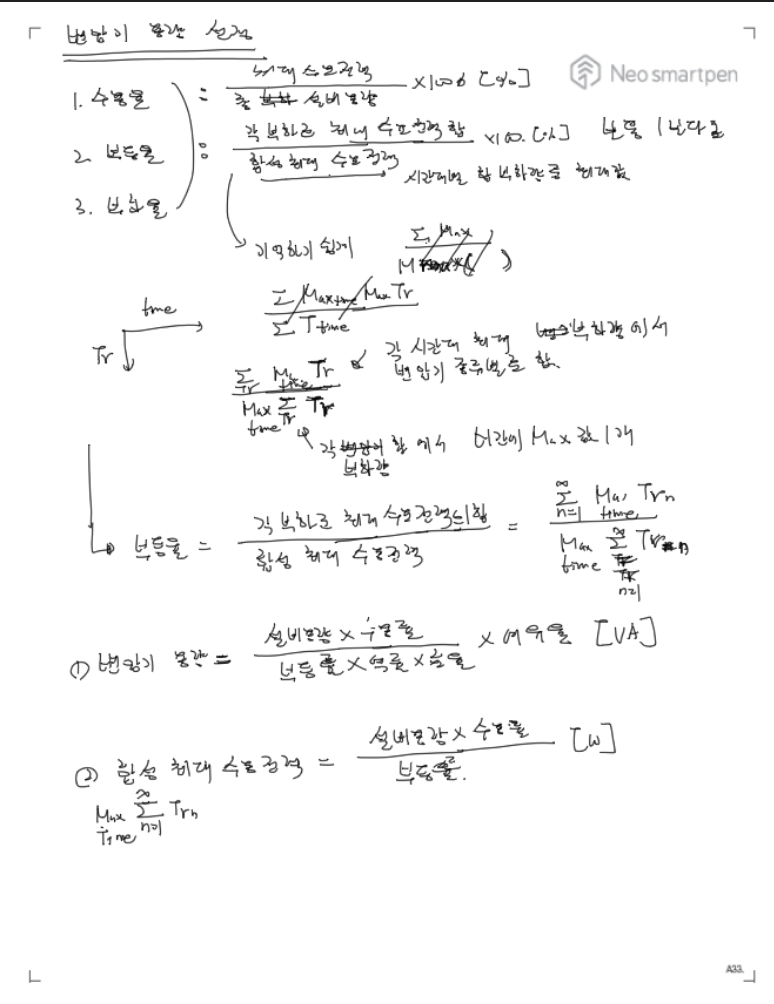 변압기 용량 선정
Neo smartpen
1. 수용률 : 최대 수요전력 / 총 설비용량 ×100 [%]
2. 부등률 : 각 부하로 최대 수요전력 합 / 합성 최대 수요전력 ×100. [%] 보통 1보다 큼
시간대별 합 부하량 중 최대값
3. 부하율
기억하기 쉽게
Σ Max
time
Tr
Σ Max time Max Tr / Σ T time
Σ Tr Max time Tr / Max time Σ Tr Tr
각 시간대 최대 부하량에서
변압기 종류별로 합
각 부하량 합 에서 Max 값 1개
부등률 = 각 부하로 최대 수요전력의 합 / 합성 최대 수요전력 = ∞ Σ n=1 Max time Trn / Max time ∞ Σ n=1 Trn
① 변압기 용량 = 설비용량 × 수용률 / 부등률 × 역률 × 효율 × 여유율 [VA]
② 합성 최대 수요전력 = 설비용량 × 수용률 / 부등률. [W]
Max Time ∞ Σ n=1 Trn
A33.